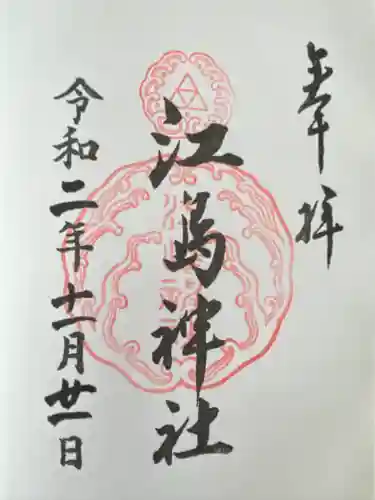 奉拝
江島神社
令和二年十一月廿一日